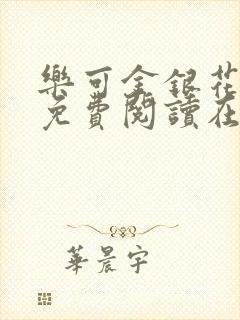 樂可金銀花
免費閱讀在
華晨宇